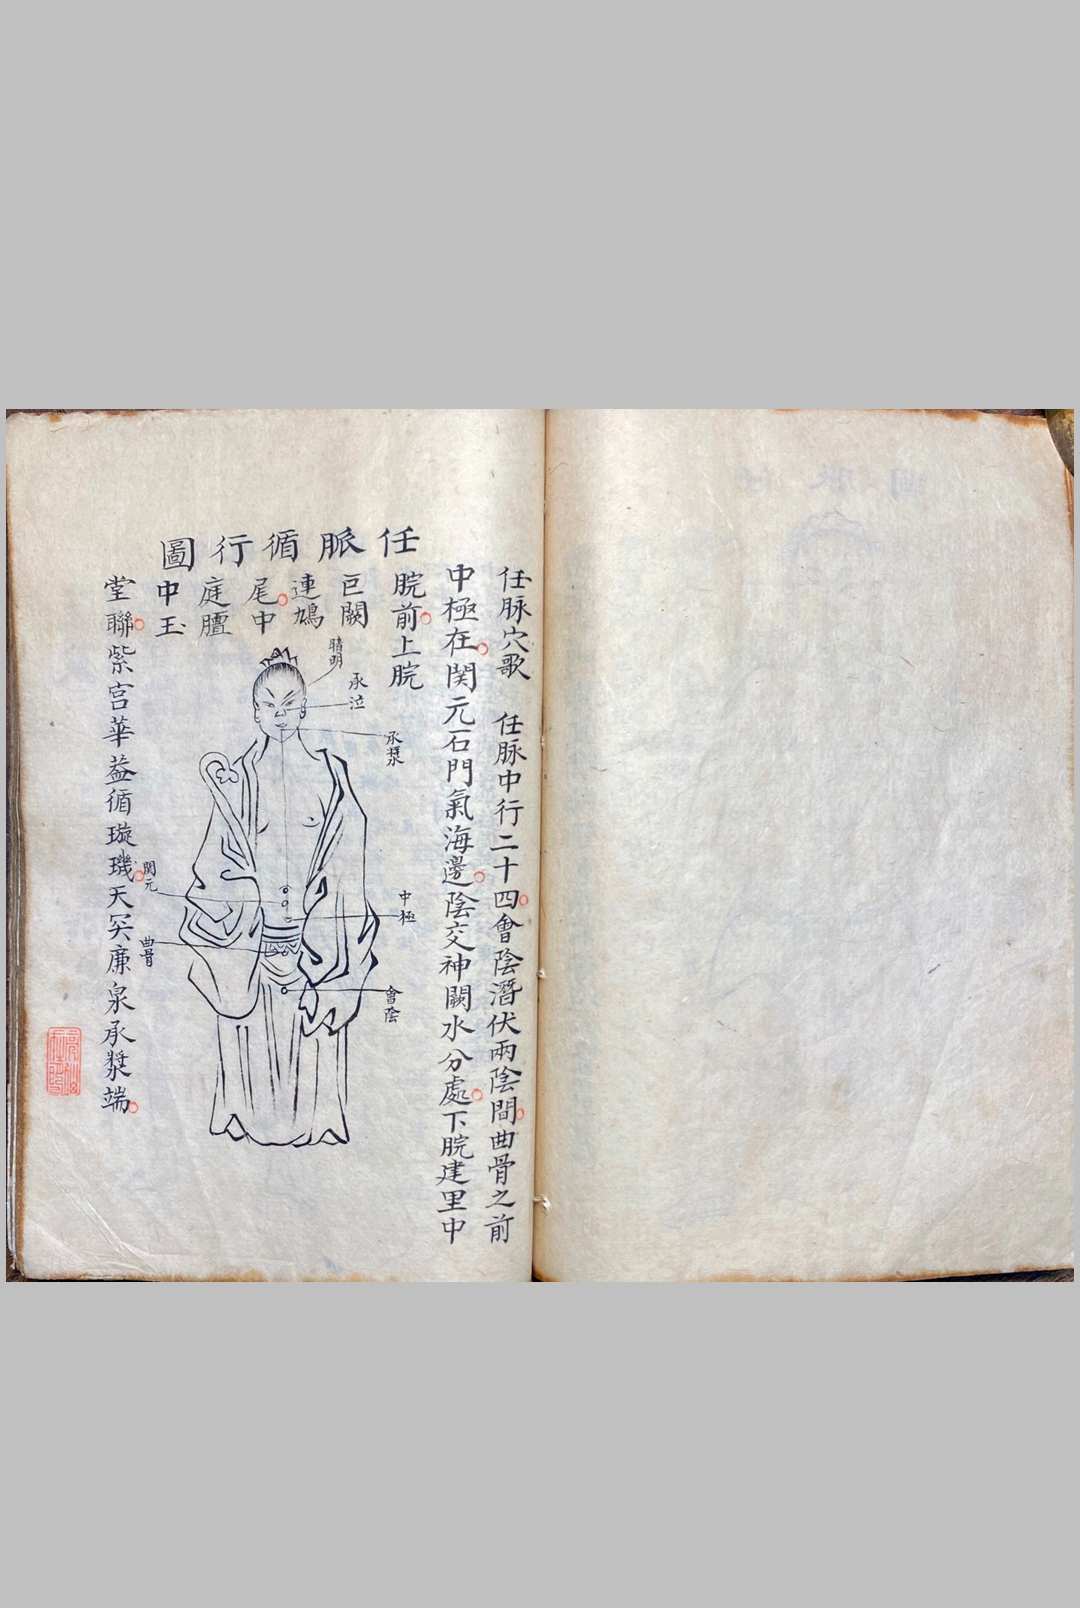 任脈穴歌　任脈中行二十四會陰潛伏兩陰間曲骨之前
中極在関元石門氣海邊陰交神闕水分處下脘建里中
脘前上脘
巨闕
連鳩
尾中
庭膻
中玉
堂聯紫宮華蓋循璇璣天突廉泉承漿端
任脈循行圖
睛明
承泣
承漿
関元
中極
曲骨
會陰